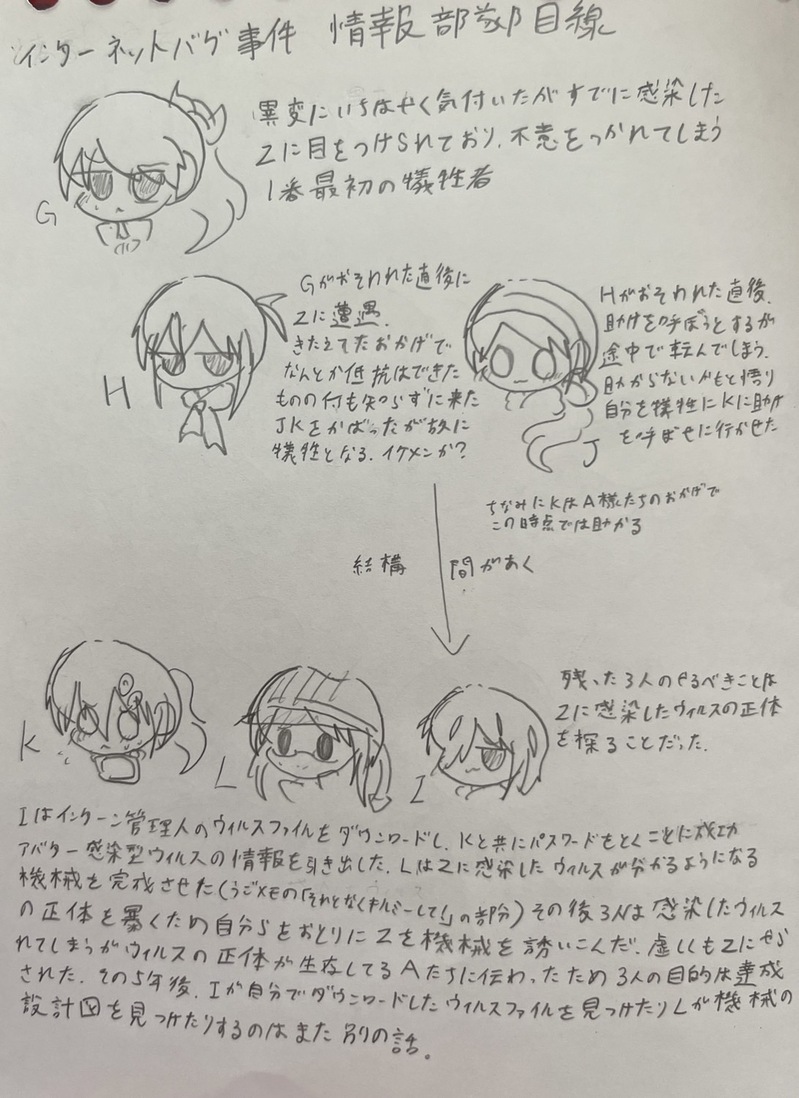 インターネットバグ事件 情報部隊目線
異変にいちはやく気付いたがすでに感染した
Zに目をつけられており、不意をつかれてしまう
1番最初の犠牲者
G
Gがおそわれた直後に
Zに遭遇.
きたえてたおかげで
なんとか低抗はできた
ものの何も知らずに来た
JKをかばったが故に
犠牲となる. イケメンか?
H
Hがおそわれた直後.
助けを呼ぼうとするが
途中で転んでしまう.
助からないかもと悟り
自分を犠牲にKに助け
を呼ばせに行かせた
J
ちなみにKはA様たちのおかげで
この時点では助かる
結構 間があく
K
L
I
残った3人のやるべきことは
Zに感染したウィルスの正体
を探ることだった.
Iはインターン管理人のウィルスファイルをダウンロードし、Kと共にパスワードをとくことに成功
アバター感染型ウイルスの情報を引き出した. LはZに感染したウィルスが分かるようになる
機械を完成させた(うごメモの「それとなくキルミーして!」の部分)その後3人は感染したウィルス
の正体を暴くため自分らをおとりにZを機械を誘いこんだ. 虚しくもZにやら
れてしまうがウィルスの正体が生存してるAたちに伝わったため3人の目的は達成
された. その5年後. Iが自分でダウンロードしたウィルスファイルを見つけたりLが機械の
設計図を見つけたりするのはまた別の話。